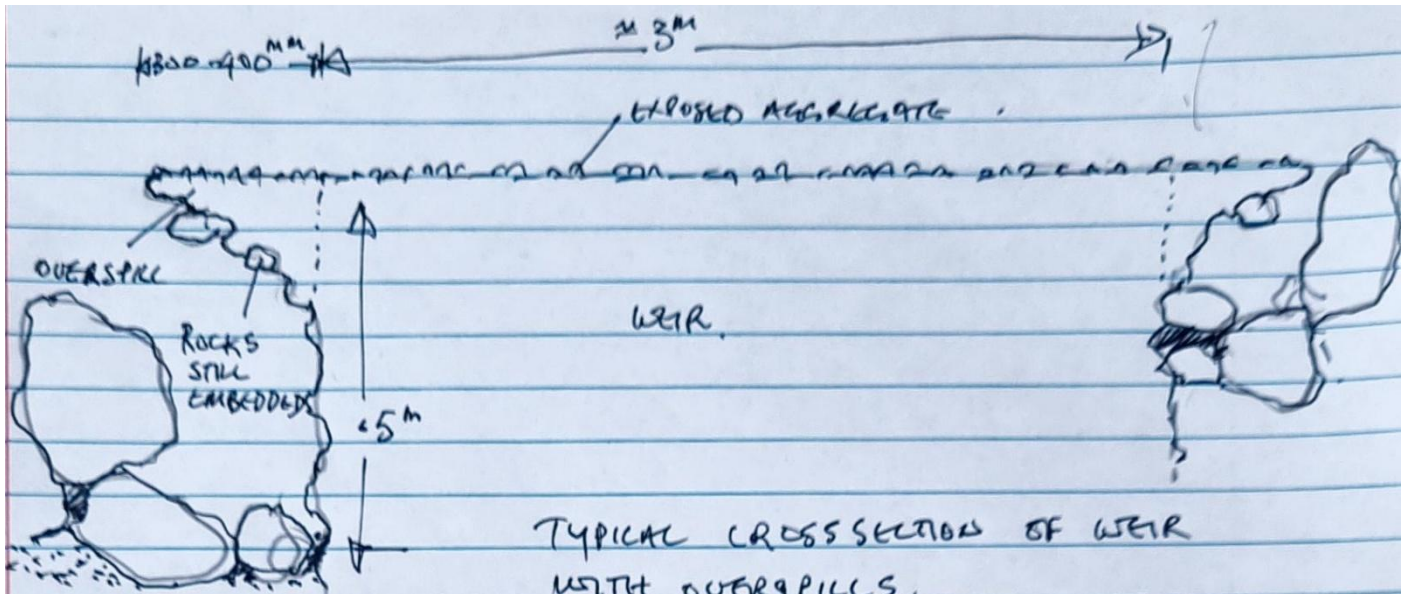 ≈ 3m
300-400mm
EXPOSED AGGREGATE
OVERSPILL
ROCKS
STILL
EMBEDDED
WEIR.
.5m
TYPICAL CROSSSECTION OF WEIR
WITH OVERSPILLS.